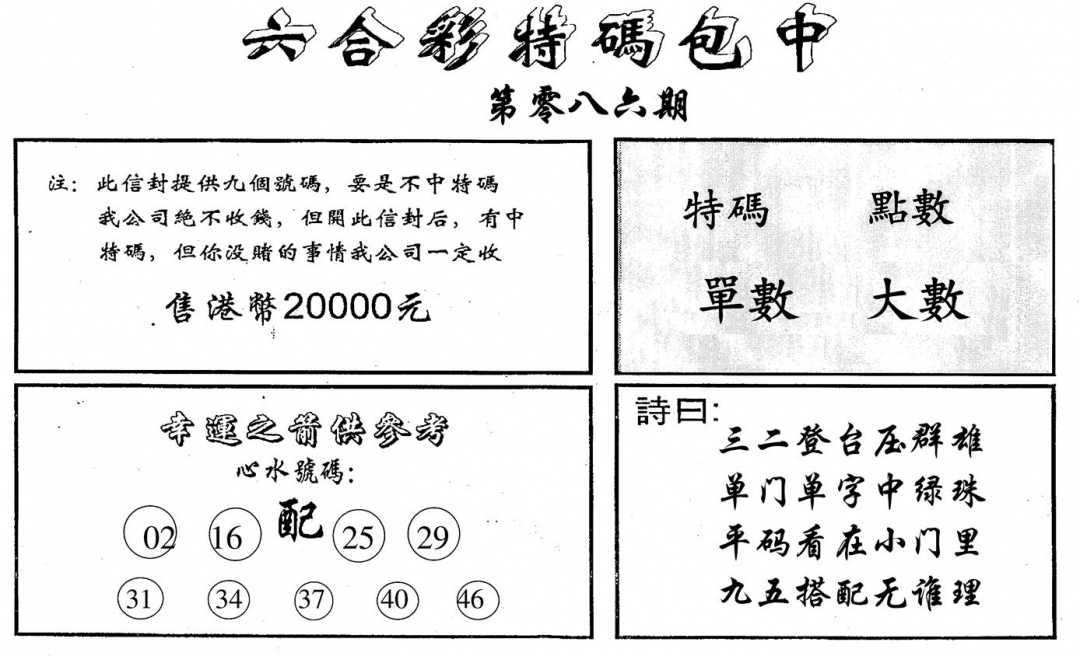 六合彩特碼包中
第零八六期
注：此信封提供九個號碼，要是不中特碼
我公司絶不收錢，但開此信封后，有中
特碼，但你没賭的事情我公司一定收
售港幣20000元
特碼 點數
單數 大數
幸運之箭供參考
心水號碼：
配
02 16 25 29
31 34 37 40 46
詩曰：
三二登台压群雄
单门单字中绿珠
平码看在小门里
九五搭配无谁理